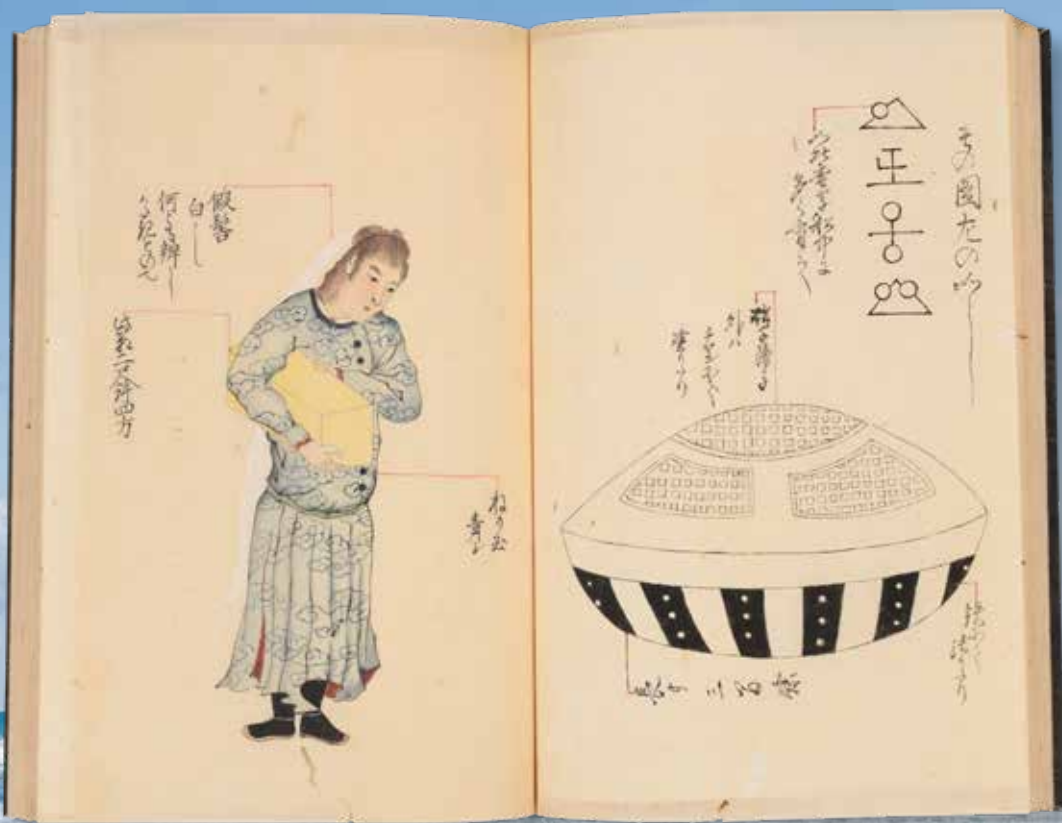 その圖左の如し
如此蛮字船中に
多く有之
硝子障子
外ハ
チヤンにて
塗りたり
鉄にて
張りたり
長サ三間餘
假髻
白し
何とも辨し
かたきもの也
四方
ねり玉
青し